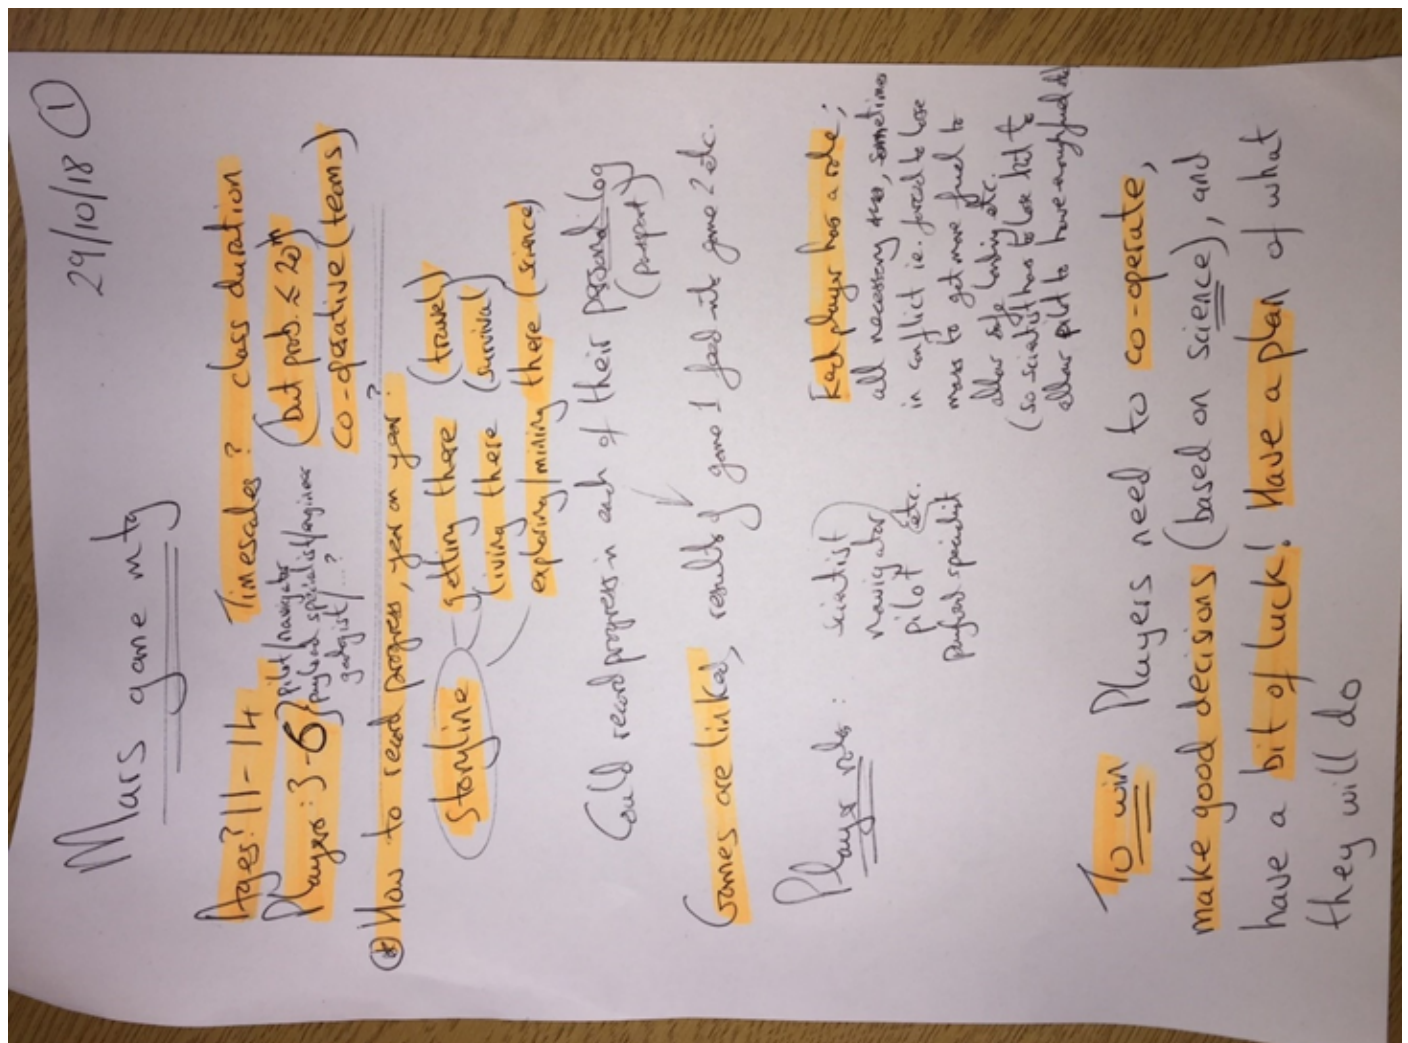 29/10/18 1
Mars game mtg
Ages? 11-14 Timescales? class duration
(but prob. ≤ 20m)
Players: 3-6 } pilot/navigator
payload specialist/engineer
geologist/...?
co-operative (teams)
* How to record progress, year on year?
Storyline - getting there (travel)
living there (survival)
exploring/mining there (science)
Could record progress in each of their personal log
(passport)
Games are linked, results of game 1 feed into game 2 etc.
Player roles: scientist
navigator
pilot etc.
payload specialist
Each player has a role;
all necessary, sometimes
in conflict ie. forced to lose
mass to get more fuel to
allow safe landing etc.
(so scientist has to lose kit to
allow pilot to have enough fuel
To win Players need to co-operate,
make good decisions (based on science), and
have a bit of luck! Have a plan of what
they will do